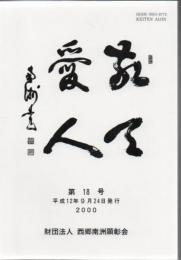 KEITEN AIJIN
敬天
愛人
南洲書
第 18 号
平成12年9月24日発行
2000
財団法人 西郷南洲顕彰会